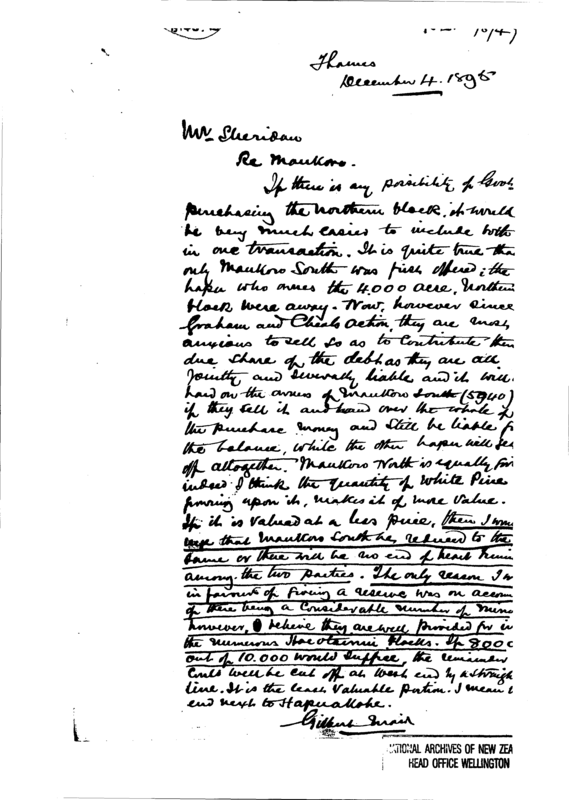 Thames
December 4. 1895
Mr Sheridan
Re Maukoro.
If there is any possibility of Govt
purchasing the northern block, it would
be very much easier to include both
in one transaction. It is quite true tha
only Maukoro South was first offered; the
hapu who owns the 4.000 acre, northern
block were away. Now, however since
Graham and action, they are most
anxious to sell so as to contribute their
due share of the debt as they are all
jointly and severally liable and it will
hard on the owners of Maukoro South (5940)
if they sell it and hand over the whole of
the purchase money and still be liable f
the balance, while the other hapu will get
off altogether. Maukoro North is equally
indeed I think the quantity of White Pine
growing upon it, makes it of more value.
If it is valued at a less price, then I
urge that Maukoro South be reduced to the
same or there will be no end of heart
among the two parties. The only reason I
in favour of giving a reserve was on accoun
of there being a considerable number of
however, I believe they are well provided for in
the numerous blocks. If 8000
out of 10.000 would suffice, the remainder
could well be cut off at West end by a straigh
line. It is the least valuable portion. I mean
end next to
Gilbert Mair
NATIONAL ARCHIVES OF NEW ZEA
HEAD OFFICE WELLINGTON